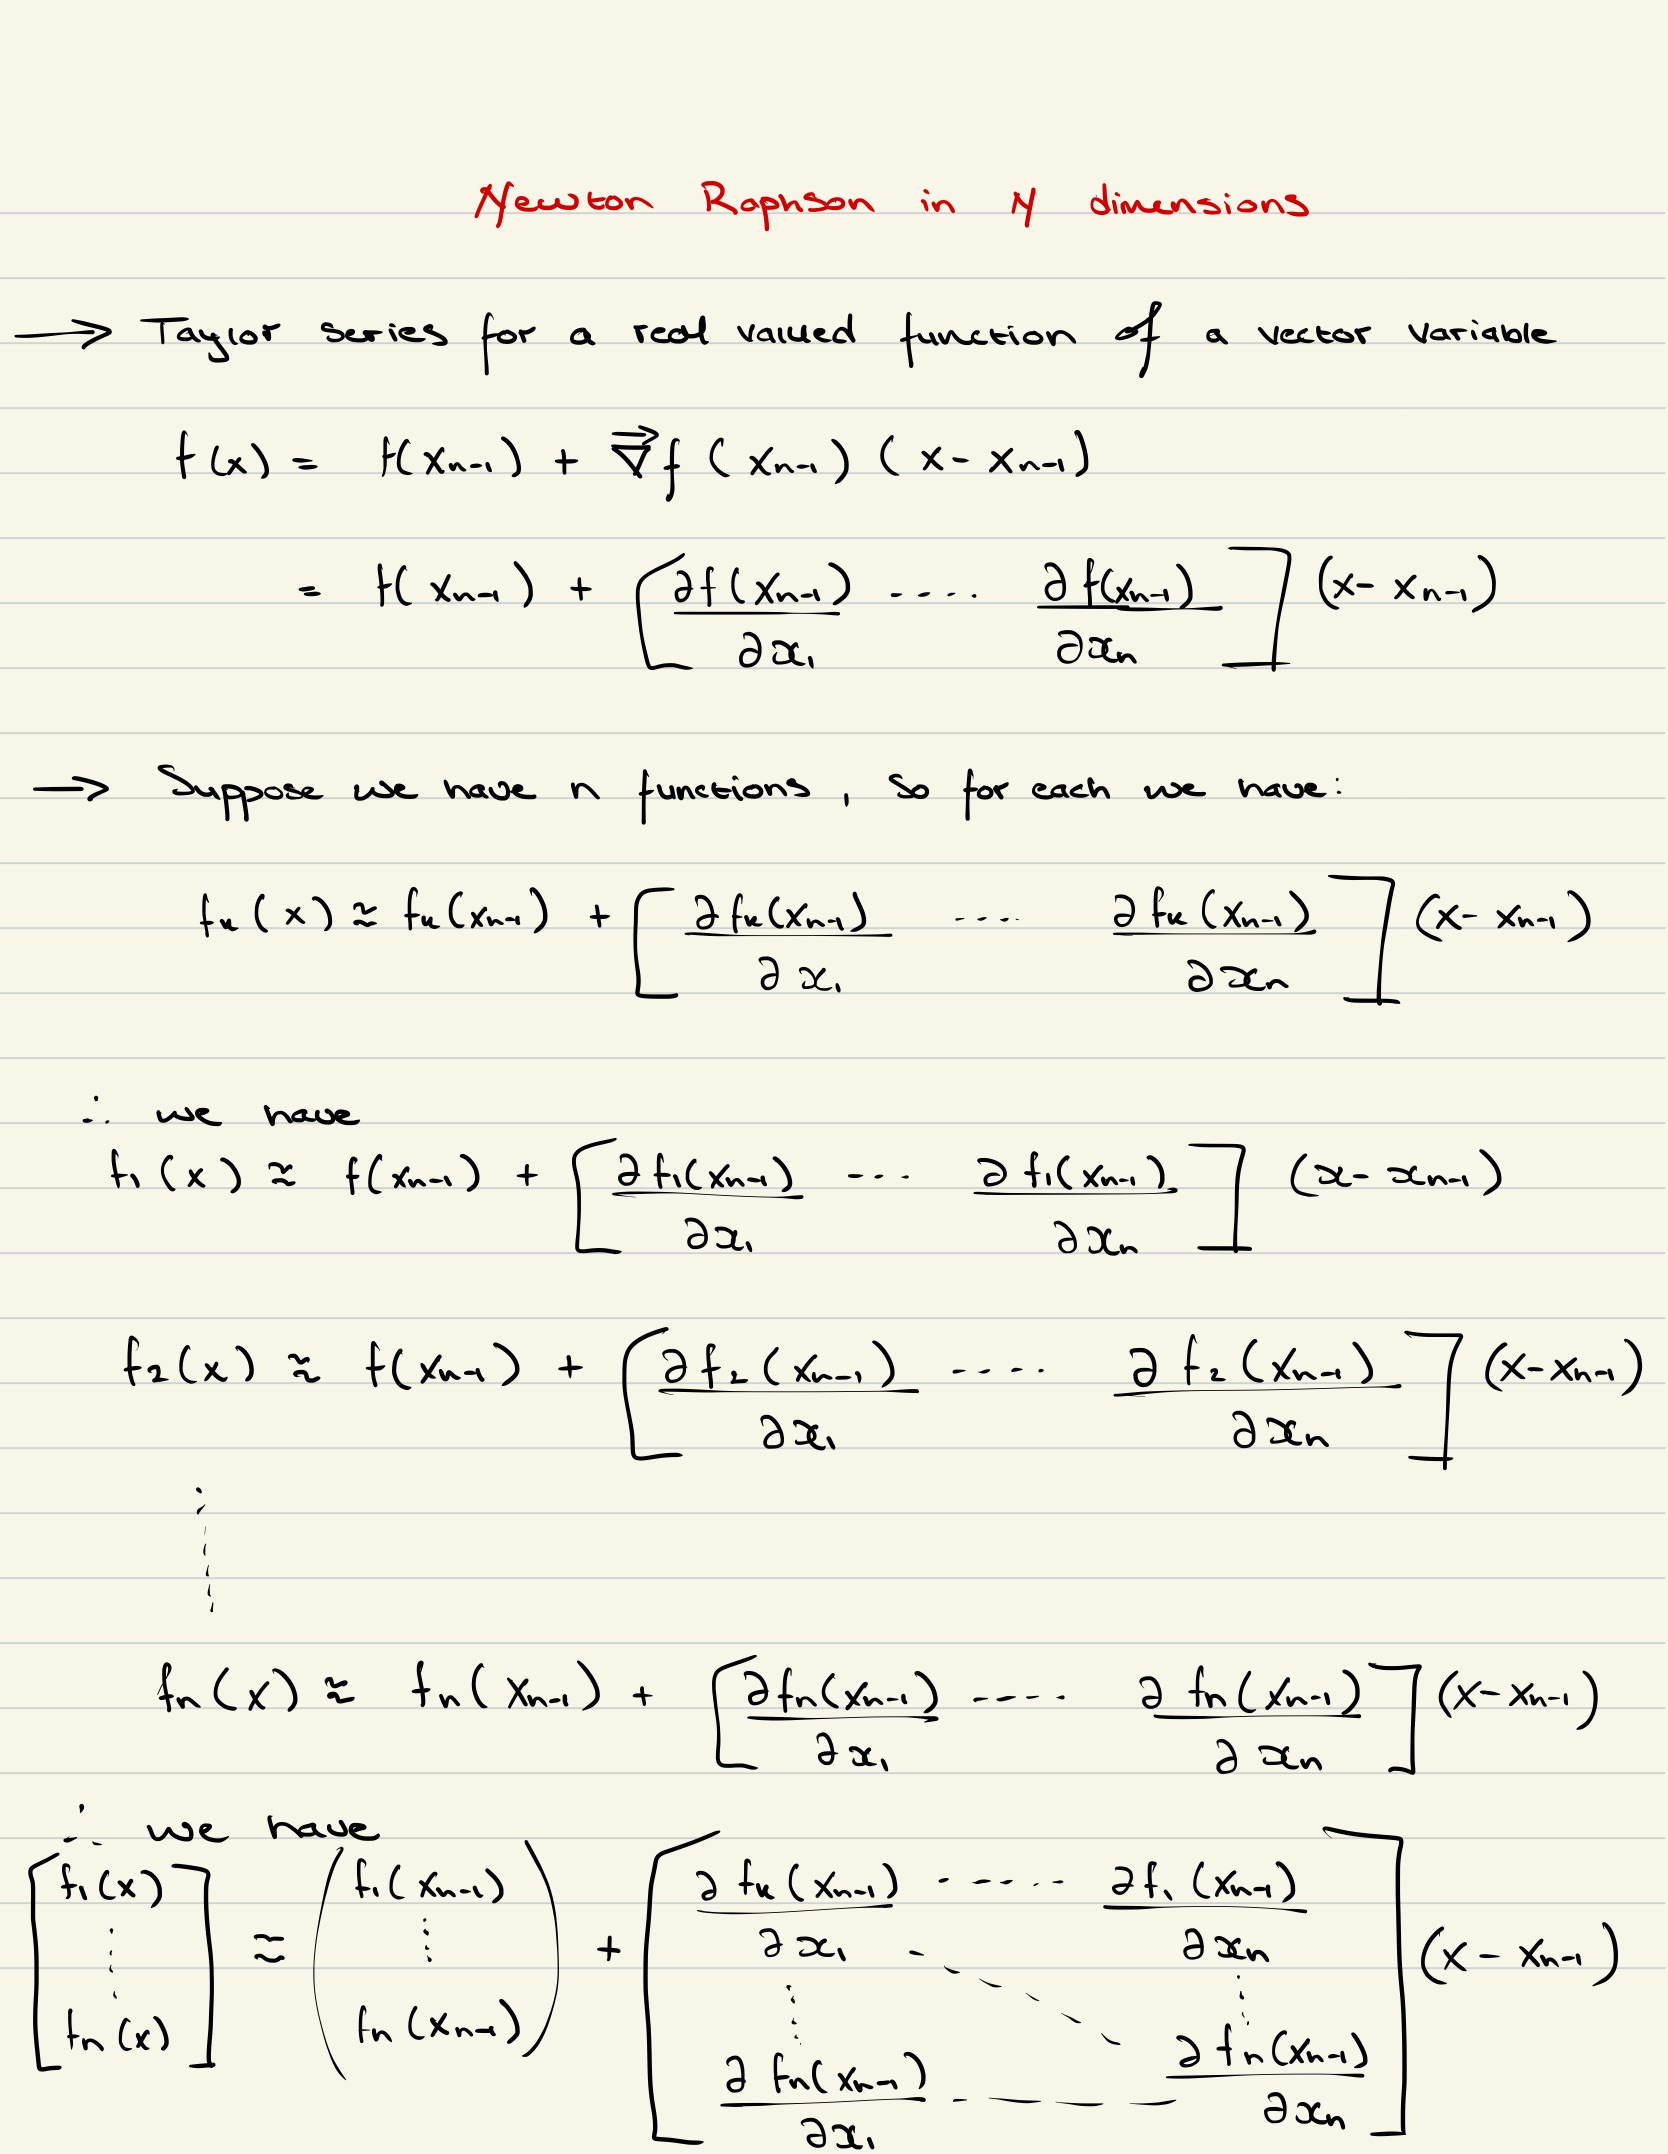 Newton Raphson in N dimensions
→ Taylor series for a real valued function of a vector variable
f(x) = f(xₙ₋₁) + ∇⃗f (xₙ₋₁) (x - xₙ₋₁)
= f(xₙ₋₁) + [∂f(xₙ₋₁)/∂x₁ .... ∂f(xₙ₋₁)/∂xₙ] (x - xₙ₋₁)
→ Suppose we have n functions, so for each we have:
fₖ(x) ≈ fₖ(xₙ₋₁) + [∂fₖ(xₙ₋₁)/∂x₁ .... ∂fₖ(xₙ₋₁)/∂xₙ] (x - xₙ₋₁)
∴ we have
f₁(x) ≈ f(xₙ₋₁) + [∂f₁(xₙ₋₁)/∂x₁ ... ∂f₁(xₙ₋₁)/∂xₙ] (x - xₙ₋₁)
f₂(x) ≈ f(xₙ₋₁) + [∂f₂(xₙ₋₁)/∂x₁ .... ∂f₂(xₙ₋₁)/∂xₙ] (x - xₙ₋₁)
⋮
fₙ(x) ≈ fₙ(xₙ₋₁) + [∂fₙ(xₙ₋₁)/∂x₁ .... ∂fₙ(xₙ₋₁)/∂xₙ] (x - xₙ₋₁)
∴ we have
[f₁(x) ⋮ fₙ(x)] ≈ (f₁(xₙ₋₁) ⋮ fₙ(xₙ₋₁)) + [∂fₖ(xₙ₋₁)/∂x₁ ..... ∂f₁(xₙ₋₁)/∂xₙ ⋮ ⋱ ⋮ ∂fₙ(xₙ₋₁)/∂x₁ ..... ∂fₙ(xₙ₋₁)/∂xₙ] (x - xₙ₋₁)